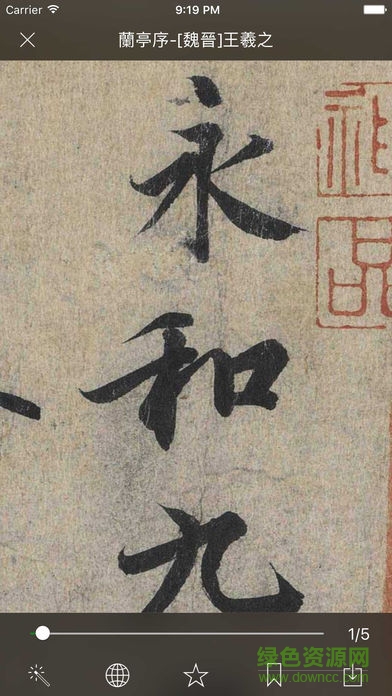 Carrier 9:19 PM
蘭亭序-[魏晉]王羲之
永和九
1/5
绿色资源网
www.downcc.com